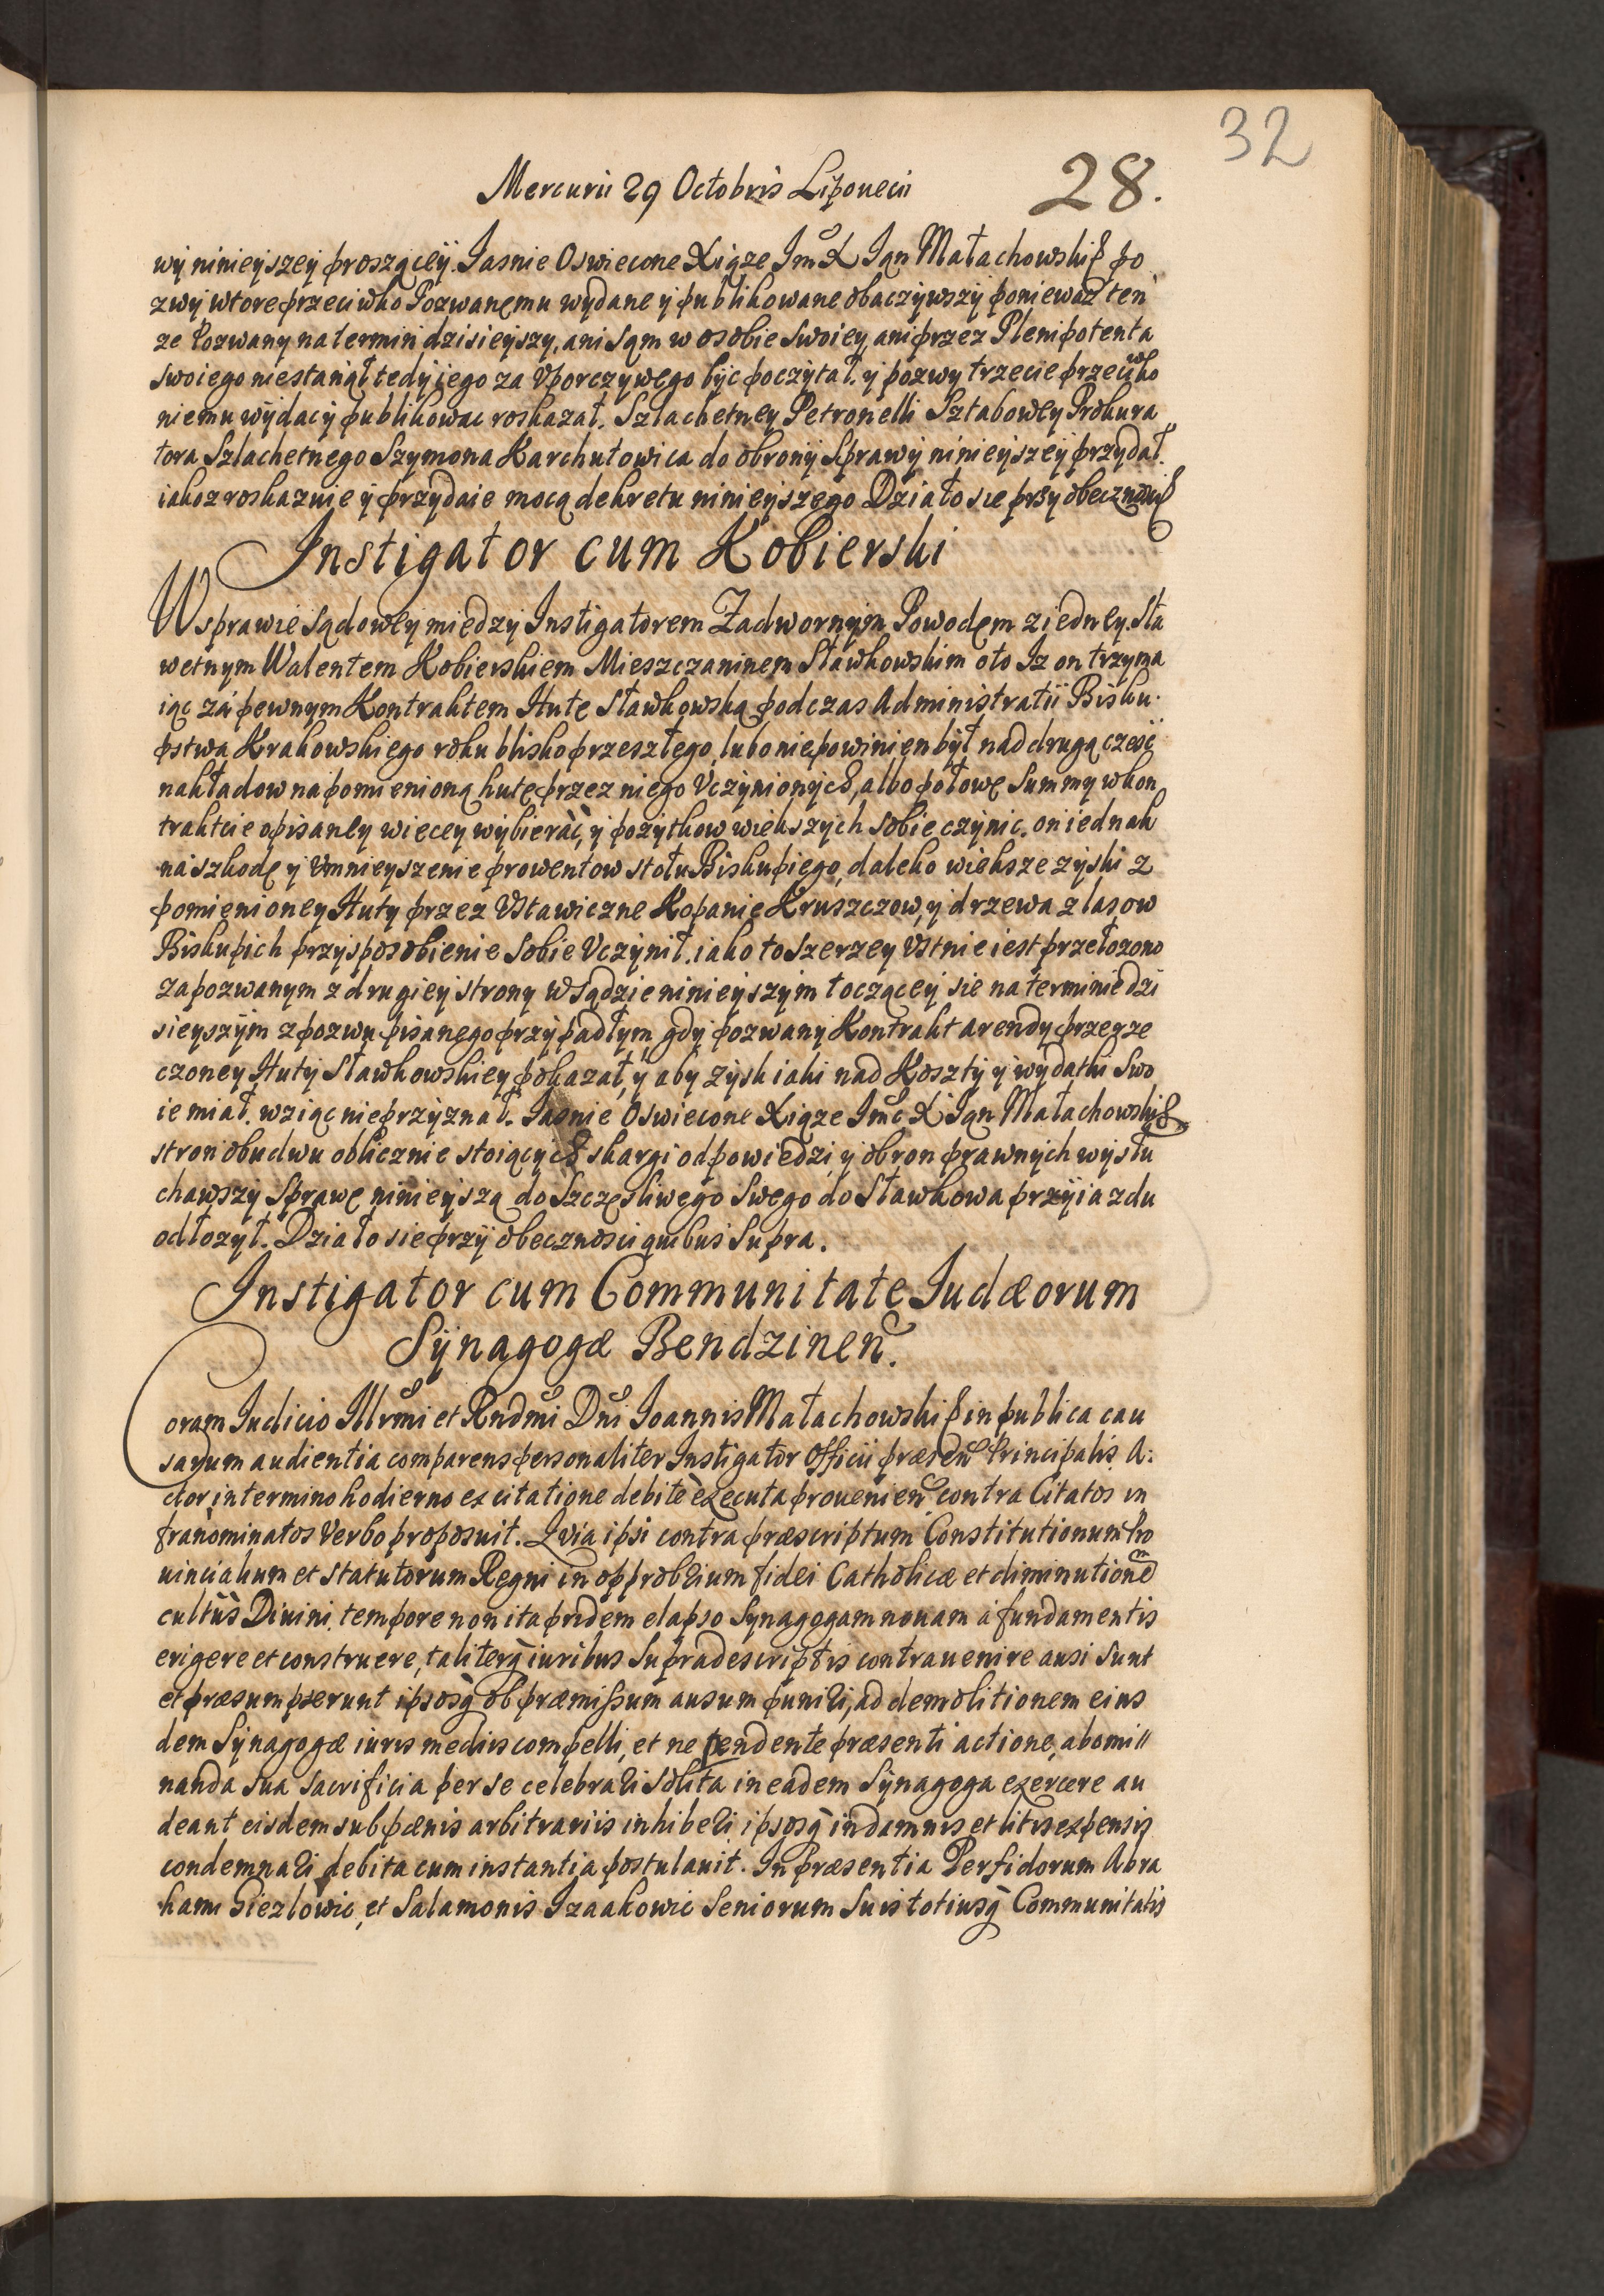 32
Mercurii 29 Octobris Lipouecii 28.
wÿ ninieÿszeÿ proszącëÿ. Iasnie Oswiecone Xiąze Imć X Iąn Małachowski & po
zwÿ wtore przeciwko Pozwanęmu wÿdane ÿ publikowane obaczÿwszÿ poniewaz ten
ze Pozwanÿ na termin dzisieÿszy, ani sąm w osobie swoiey ani przez Plenipotenta
swoiego niestanął tedÿ iego za Vporczÿwego bÿc poczÿtał. ÿ pozwÿ trzecie przeciwko
niemu wÿdac ÿ publikowac roskazał. Szlachetney Petronelli Sztabowëy Prokura
tora Szlachetnego Szymona Karchutowica do obronÿ Sprawÿ ninieÿszeÿ przÿdał.
iakoz roskazuie ÿ przÿdaie mocą dekretu ninieÿszego Działo się przÿ obecznosci &
Instigator cum Kobierski
W sprawie Sądowëy międzÿ Instigatorem Zadwornÿm Powodęm ziednëy. Sła
wetnym Walentem Kobierskiem Mieszczaninem Sławkowskim oto Iz on trzyma
iąc zá pewnym Kontraktem Hute Sławkowską podczas Administratii Bisku
pstwa Krakowskiego roku blisko przeszłego, lubo niepowinien bÿł nad drugą czesć
nakładow na pomienioną hutę przez niego Vczÿnionÿch, albo połowę Summy wkon
trakcie opisanëy wiecey wÿbierać, ÿ pozÿtkow wiekszÿch sobie czÿnic. on iednak
na szkodę ÿ vmnieÿszenie prowentow stołu Biskupiego, daleko wieksze zÿski z
pomienioney Huty przez Vstawiczne Kopanie Kruszczow, ÿ drzewa z lasow
Biskupich przÿsposobienie sobie Vczÿnił. iako to szerzey Vstnie iest przełozono
zapozwanym z drugieÿ stronÿ w Sądzie ninieÿszÿm toczącëÿ się na terminie dzi
sieÿszÿm z pozwu pisanego przÿpadłÿm, gdÿ pozwanÿ Kontrakt arendÿ przerze
czoney Hutÿ Sławkowskieÿ pokazał, ÿ aby zÿsk iaki nad Kosztÿ ÿ wÿdatki Swo
ie miał. wziąc nieprzÿznał. Jasnie Oswiecone Xiąze Imć X Iąn Małachowski &
stron obudwu oblicznie stoiącÿch skargi odpowiedzi ÿ obron prawnych wÿsłu
chawszÿ Sprawę ninieÿszą do Szczęsliwego Swego do Sławkowa przÿiazdu
odłozÿł. Działo się przÿ obecznosci quibus Supra.
Instigator cum Communitate Iudæorum
Sÿnagogæ Bendzinen.
Coram Iudicio Illrmi et Rndmi Dni Ioannis Małachowski & in publica cau
sarum audientia comparens personaliter Instigator Officii præsen Principalis A:
ctor in termino hodierno ex citatione debitè executa prouenien contra Citatos in
franominatos Verbo proposuit. Quia ipsi contra præscriptum Constitutionum Pro
uincialium et statutorum Regni in opprobrium fidei Catholicæ et diminutionem
cultûs Diuini, tempore non ita pridem elapso Synagogam nouam à fundamentis
erigere et construere, taliterq; iuribus supradescriptis contrauenire ausi sunt
et præsumpserunt ipsosq; ob præmissum ausum puniri, ad demolitionem eius
dem Sÿnagogæ iuris mediis compelli, et ne pendente præsenti actione, abomi
nanda sua sacrificia per se celebrari solita in eadem Sÿnagoga exercere au
deant eisdem sub pænis arbitrariis inhiberi, ipsosq; in damnis et litis expensis
condemnari debita cum instantia postulauit. In præsentia Perfidorum Abra
hami Giezlowic, et Salamonis Izaakowic Seniorum suis totiusq; Communitatis